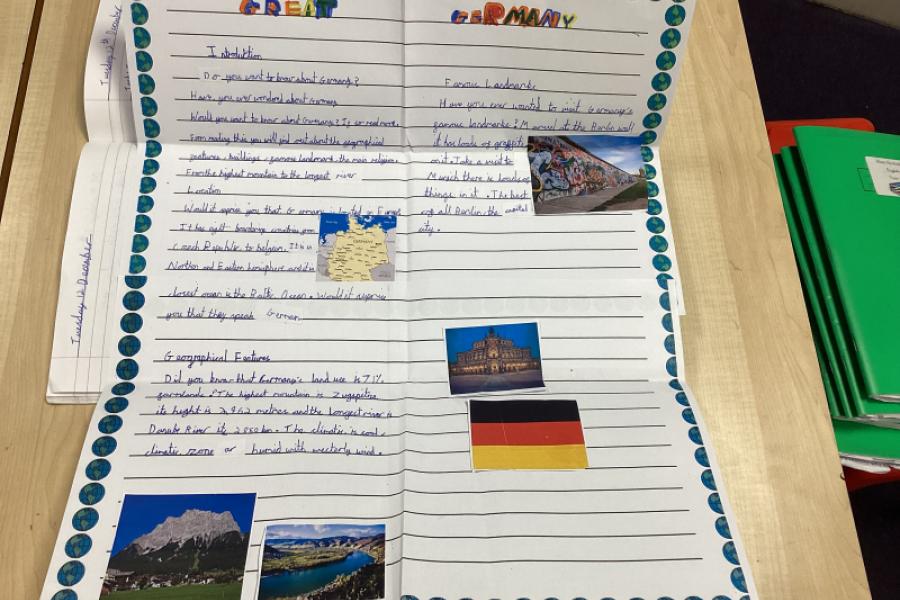 GREAT GERMANY
Introduction
Do you want to know about Germany?
Have, you ever wondered about Germany
Would you want to know about Germany? If so read more.
From making this you will find out about the geographical
features, buildings, famous landmark, the main religion.
From the highest mountain to the longest river
Location
Would it suprise you that Germany is located in Europe
It has eight bordering countries from
Czech Republic to belgium. It is in
Northen and Eastern hemisphere and it is
closest ocean is the Baltic Ocean. Would it suprise
you that they speak German.
Geographical Features
Did you know that Germany's land use is 71%
The highest mountain is Zugspitze
its hight is 2,962 metres and the longest river is
Danube River its 2850km. The climatic is cool
climatic zone or humid with westerly wind.
Famous Landmark
Have you ever wanted to visit Germany's
famous landmarks? Marvel at the Berlin wall
it has loads of graffiti
on it. Take a visit to
Munich there is loads of
things in it. The best
of all Berlin, the capital
city.
GERMANY
Tuesday 12th December
Tuesday 12 December